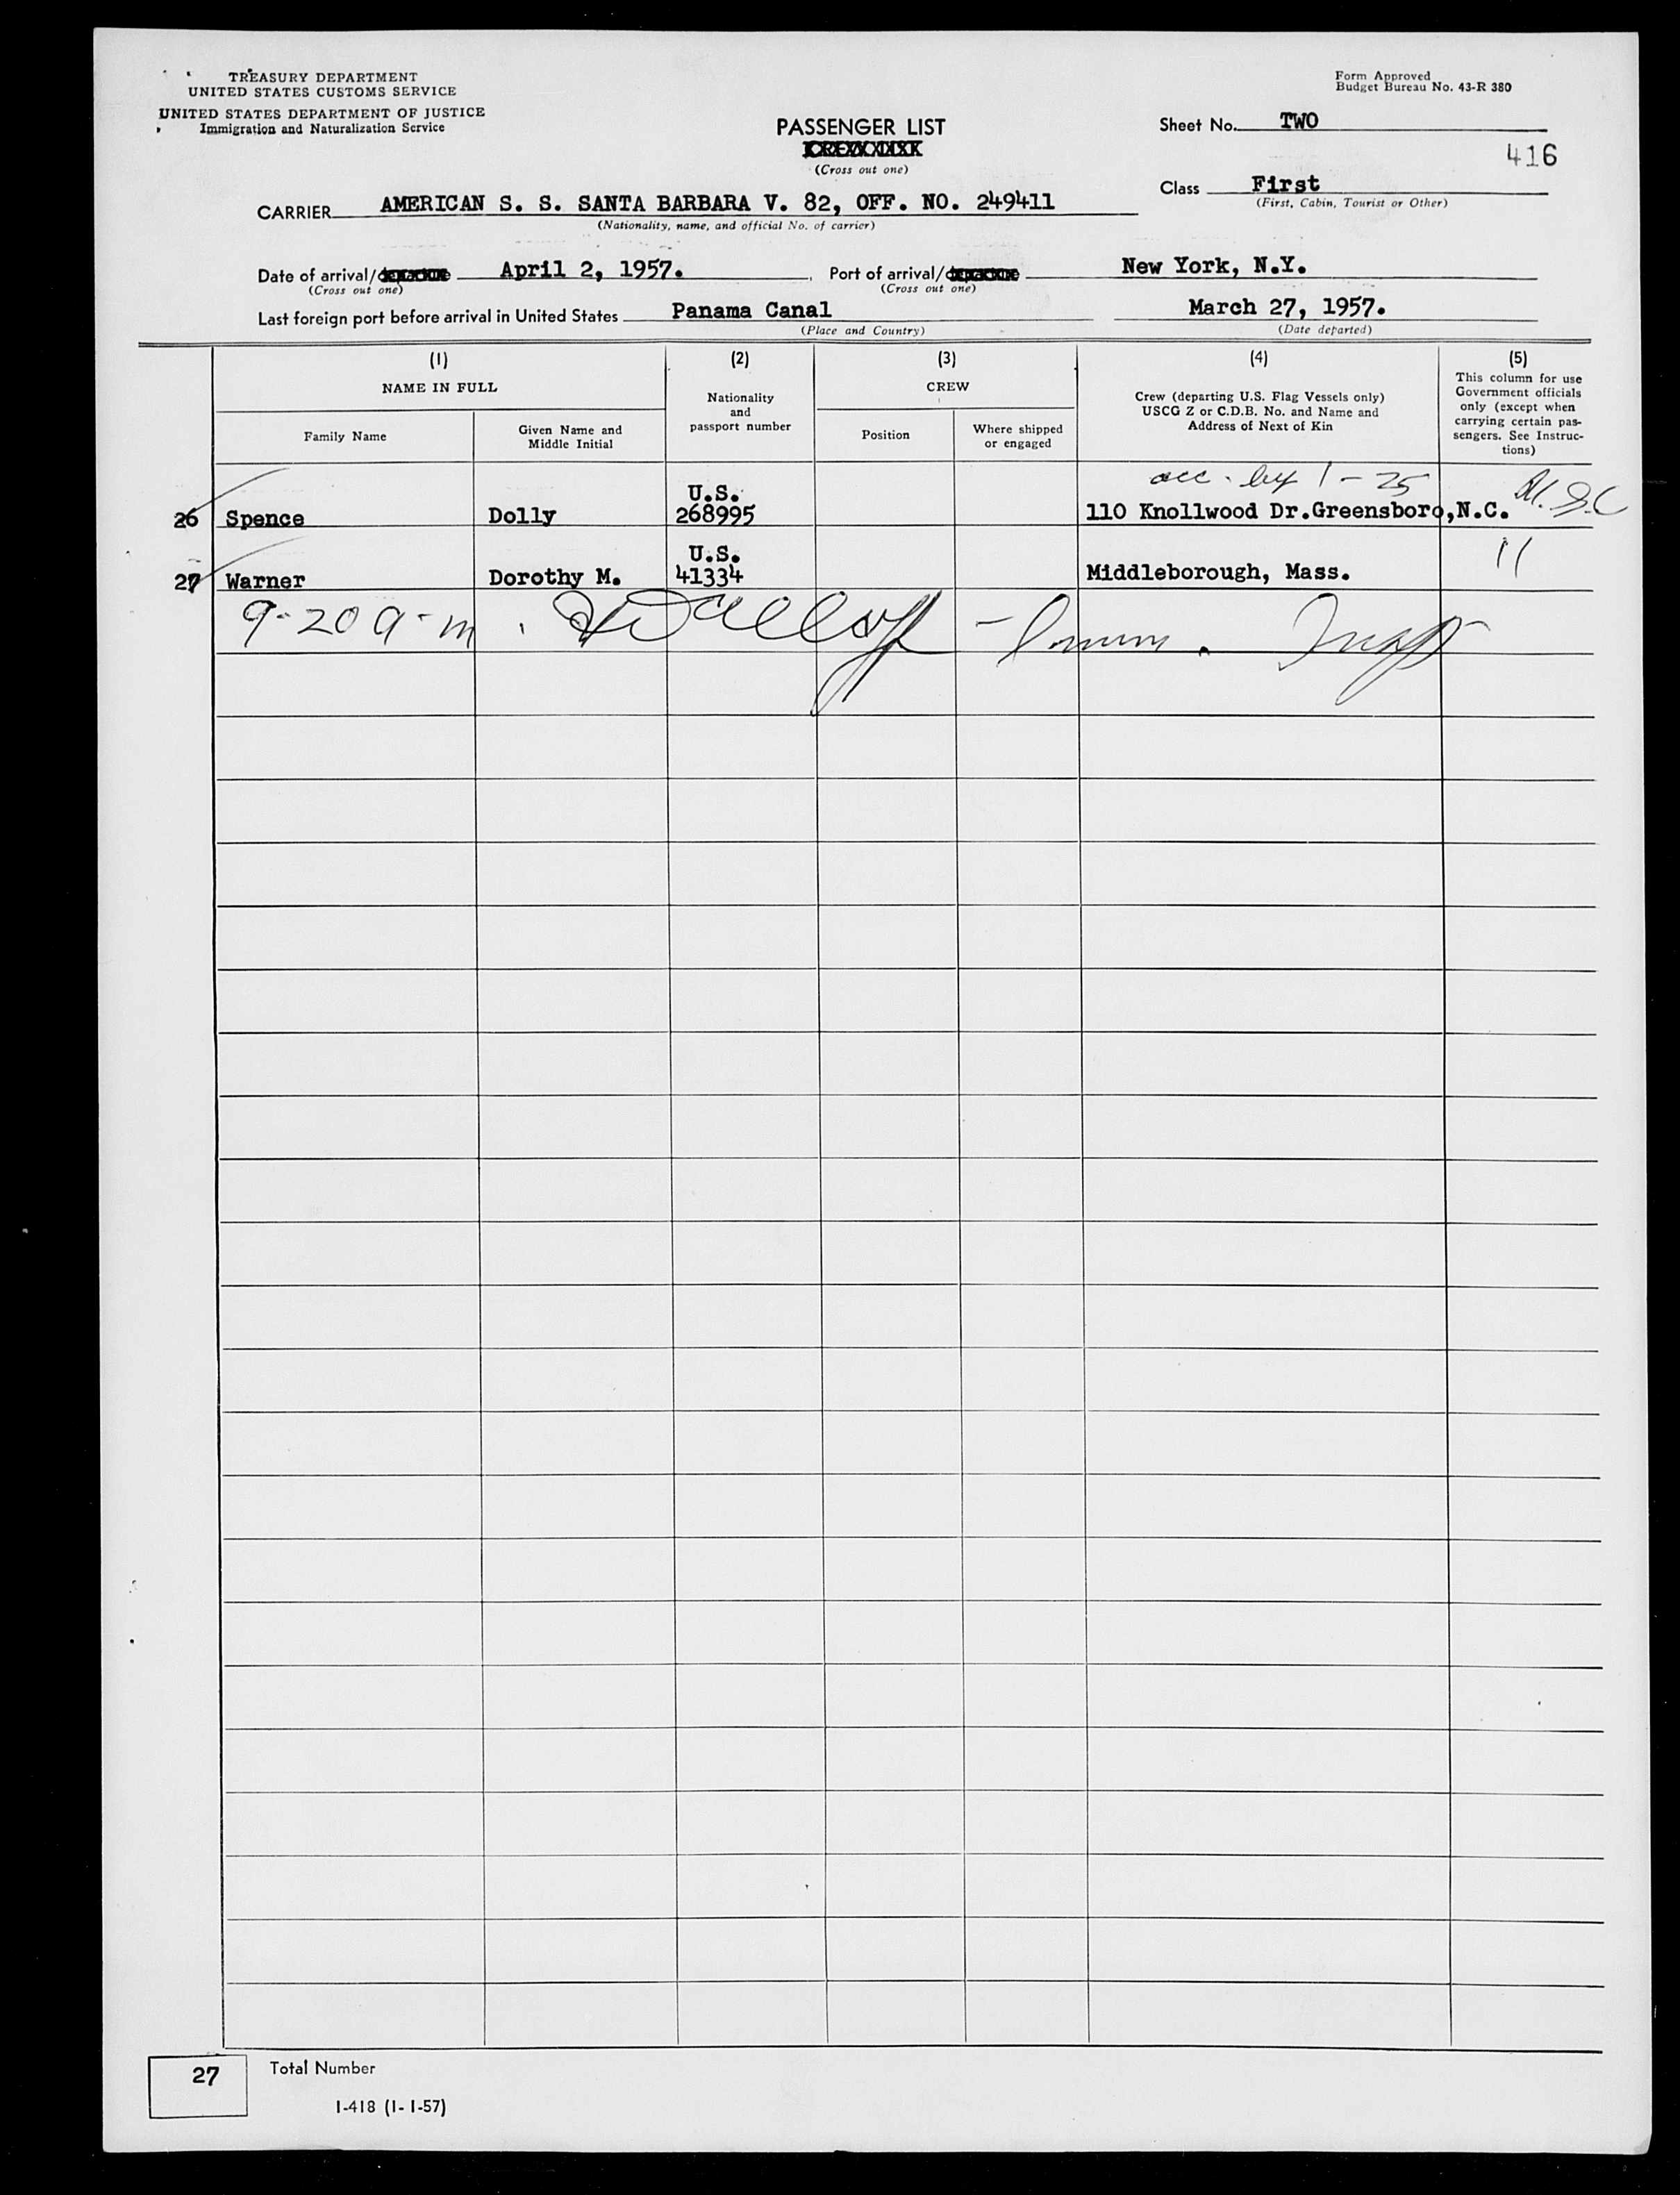 TREASURY DEPARTMENT
UNITED STATES CUSTOMS SERVICE
UNITED STATES DEPARTMENT OF JUSTICE
Immigration and Naturalization Service
Form Approved
Budget Bureau No. 43-R 380
PASSENGER LIST
(Cross out one)
Sheet No. TWO
416
Class First
(First, Cabin, Tourist or Other)
CARRIER AMERICAN S. S. SANTA BARBARA V. 82, OFF. NO. 249411
(Nationality, name, and official No. of carrier)
Date of arrival/ April 2, 1957. Port of arrival/ New York, N.Y.
(Cross out one) (Cross out one)
Last foreign port before arrival in United States Panama Canal March 27, 1957.
(Place and Country) (Date departed)
(1) (2) (3) (4) (5)
NAME IN FULL
Family Name
Given Name and
Middle Initial
Nationality
and
passport number
CREW
Position
Where shipped
or engaged
Crew (departing U.S. Flag Vessels only)
USCG Z or C.D.B. No. and Name and
Address of Next of Kin
This column for use
Government officials
only (except when
carrying certain pas-
sengers. See Instruc-
tions)
acc. by 1-25
U.S.
26 Spence Dolly 268995 110 Knollwood Dr.Greensboro,N.C.
U.S. 11
27 Warner Dorothy M. 41334 Middleborough, Mass.
9-20 a-m Imm. Insp
27 Total Number
I-418 (1-1-57)